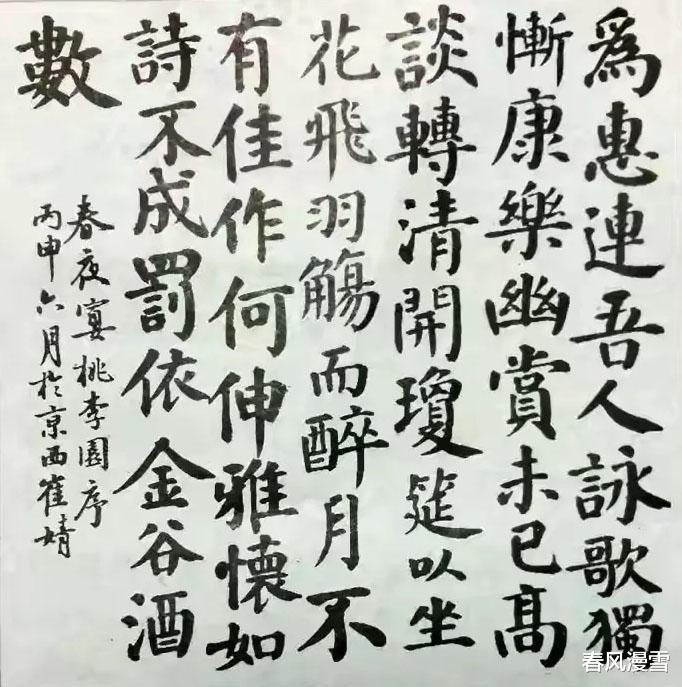 為惠連吾人詠歌獨
慚康樂幽賞未已高
談轉清開瓊筵以坐
花飛羽觴而醉月不
有佳作何伸雅懷如
詩不成罰依金谷酒
數
春夜宴桃李園序
丙申六月於京西崔婧
春风漫雪